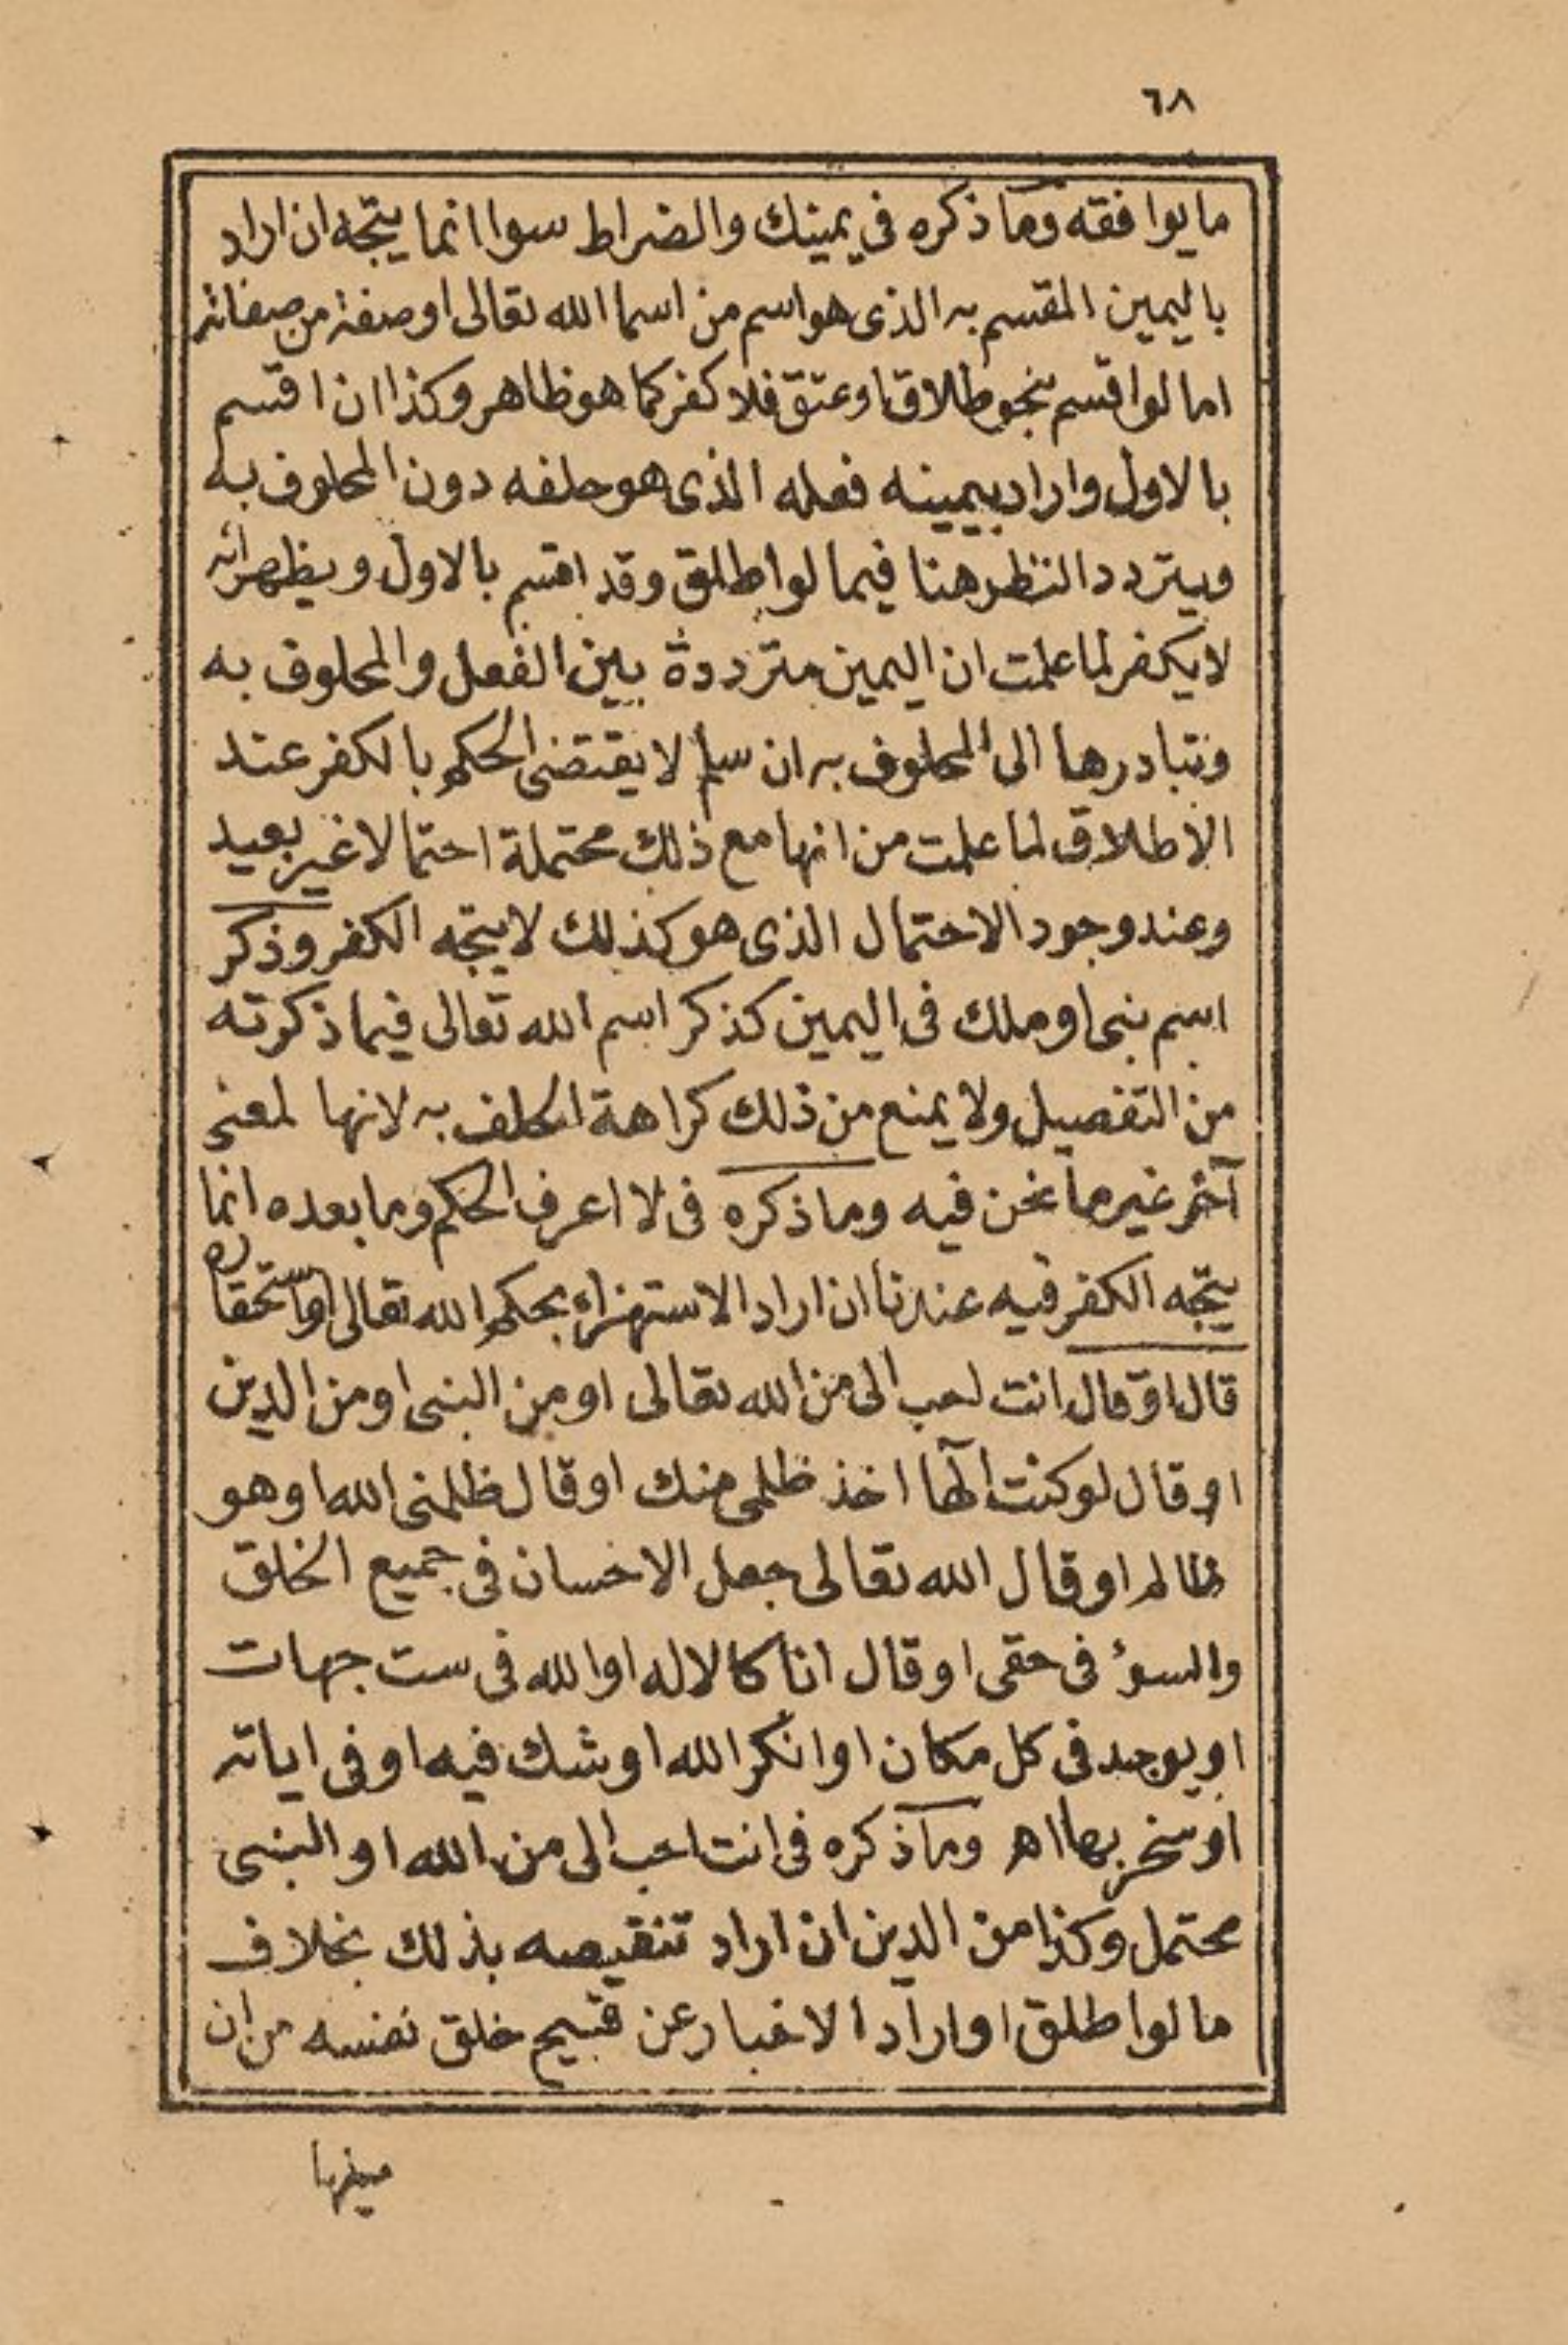 ٦٨
ما يوافقه وما ذكره في يمينك والضراط سوا انما يتجه ان اراد
باليمين المقسم به الذى هو اسم من اسما الله تعالى او صفة من صفاته
اما لو اقسم بنحو طلاق او عتق فلا كفر كما هو ظاهر وكذا ان اقسم
بالاول واراد بيمينه فعله الذى هو حلفه دون المحلوف به
ويتردد النظر هنا فيما لو اطلق وقد اقسم بالاول ويظهر انه
لا يكفر لما علمت ان اليمين مترددة بين الفعل والمحلوف به
وتبادرها الى المحلوف به ان سلم لا يقتضى الحكم بالكفر عند
الاطلاق لما علمت من انها مع ذلك محتملة احتمالا غير بعيد
وعند وجود الاحتمال الذى هو كذلك لا يتجه الكفر وذكر
اسم نبى او ملك فى اليمين كذكر اسم الله تعالى فيما ذكرته
من التفصيل ولا يمنع من ذلك كراهة الحلف به لانها لمعنى
آخر غير ما نحن فيه وما ذكره فى لا اعرف الحكم وما بعده انما
يتجه الكفر فيه عندنا ان اراد الاستهزاء بحكم الله تعالى او استحقاره
قال او قال انت احب الى من الله تعالى او من النبى او من الدين
او قال لو كنت الٓها اخذ ظلمى منك او قال ظلمنى الله او هو
ظالم او قال الله تعالى جعل الاحسان فى جميع الخلق
والسوؤ فى حقى او قال انا كالاله او الله فى ست جهات
او يوجد فى كل مكان او انكر الله او شك فيه او فى اياته
او سخر بها اهـ وما ذكره فى انت احب الى من الله او النبى
محتمل وكذا من الدين ان اراد تنقيصه بذلك بخلاف
ما لو اطلق او اراد الاخبار عن قبيح خلق نفسه من ان
ميلها